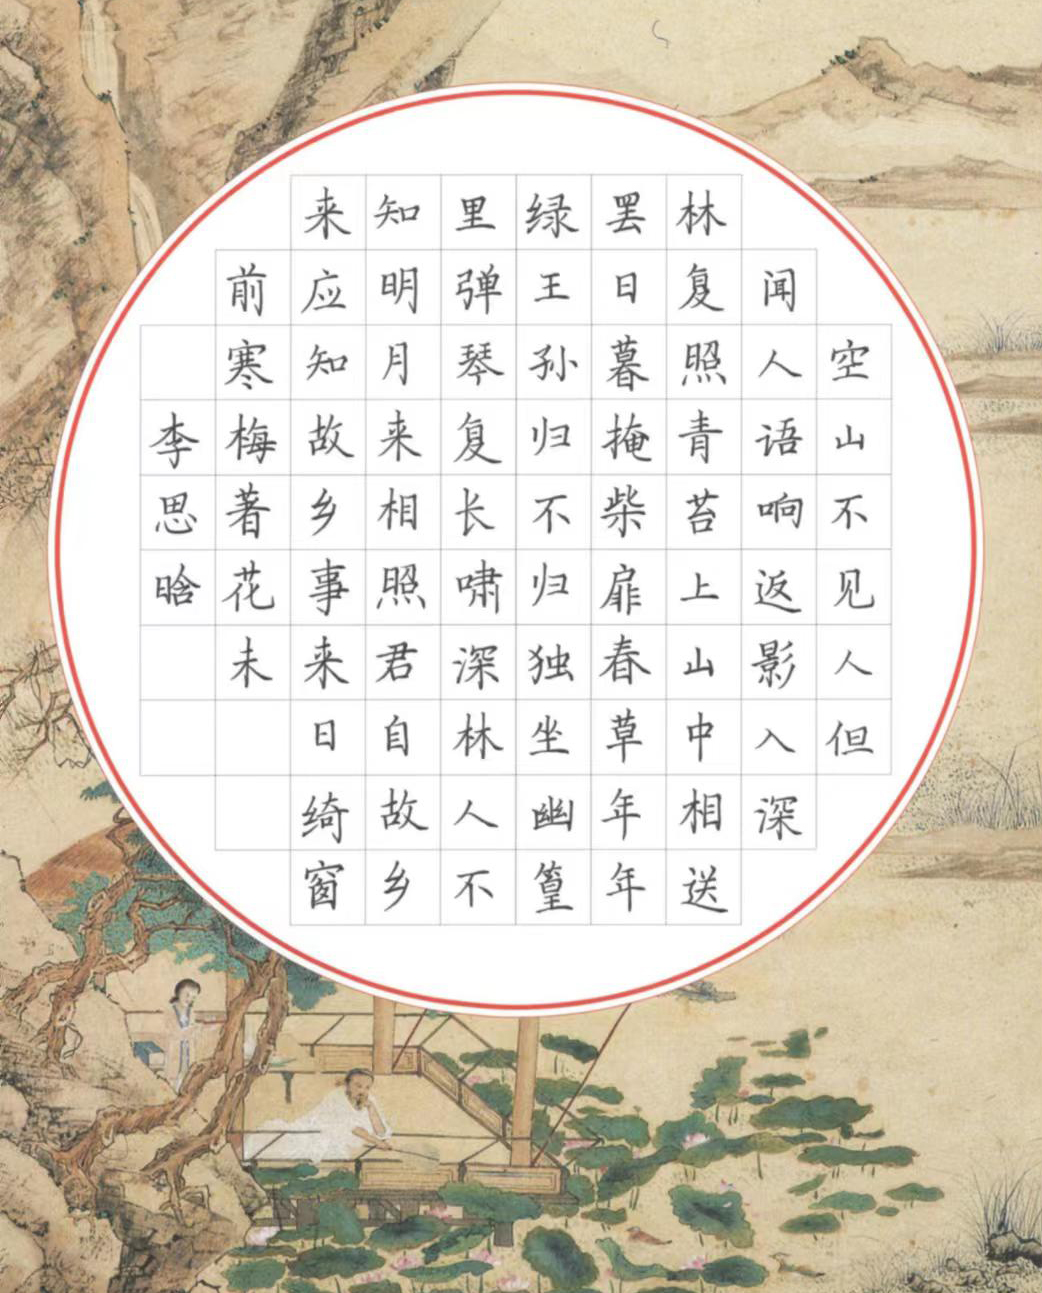 空山不见人但
闻人语响返影入深
林复照青苔上山中相送
罢日暮掩柴扉春草年年
绿王孙归不归独坐幽篁
里弹琴复长啸深林人不
知明月来相照君自故乡
来应知故乡事来日绮窗
前寒梅著花未
李思晗